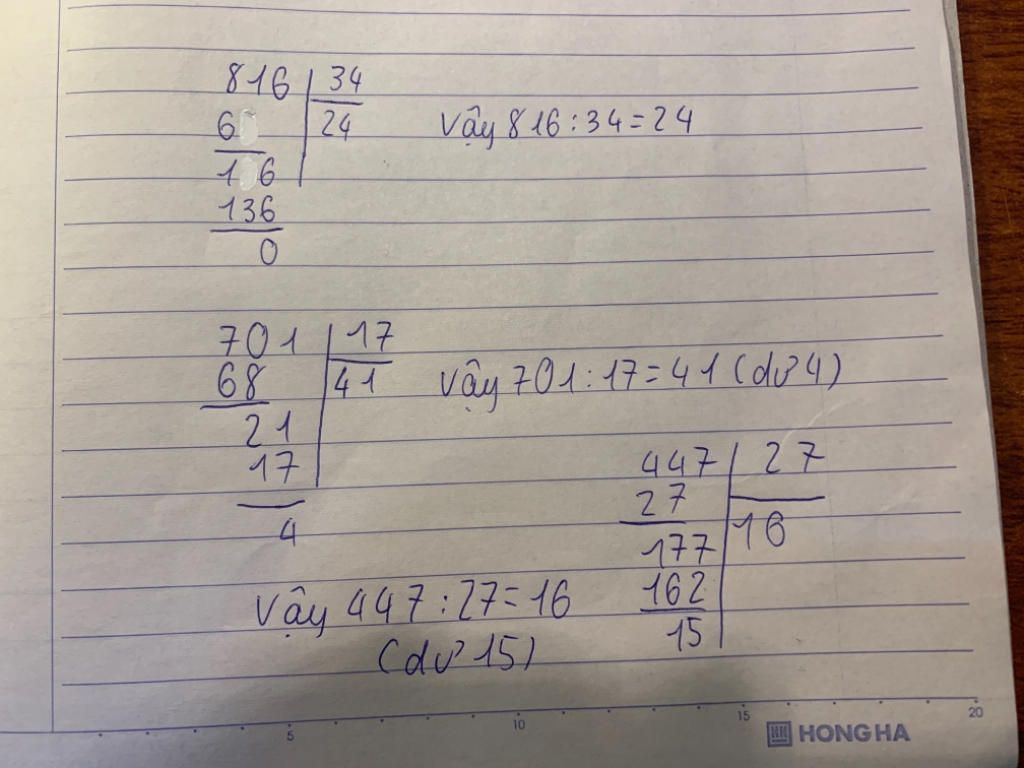 816 34
6 24 Vậy 816:34=24
1 6
136
0
701 17
68 41 Vậy 701:17=41 (dư 4)
21
17
4
447 27
27 16
177
162
15
Vậy 447:27=16
(dư 15)
5 10 15 20
HONG HA